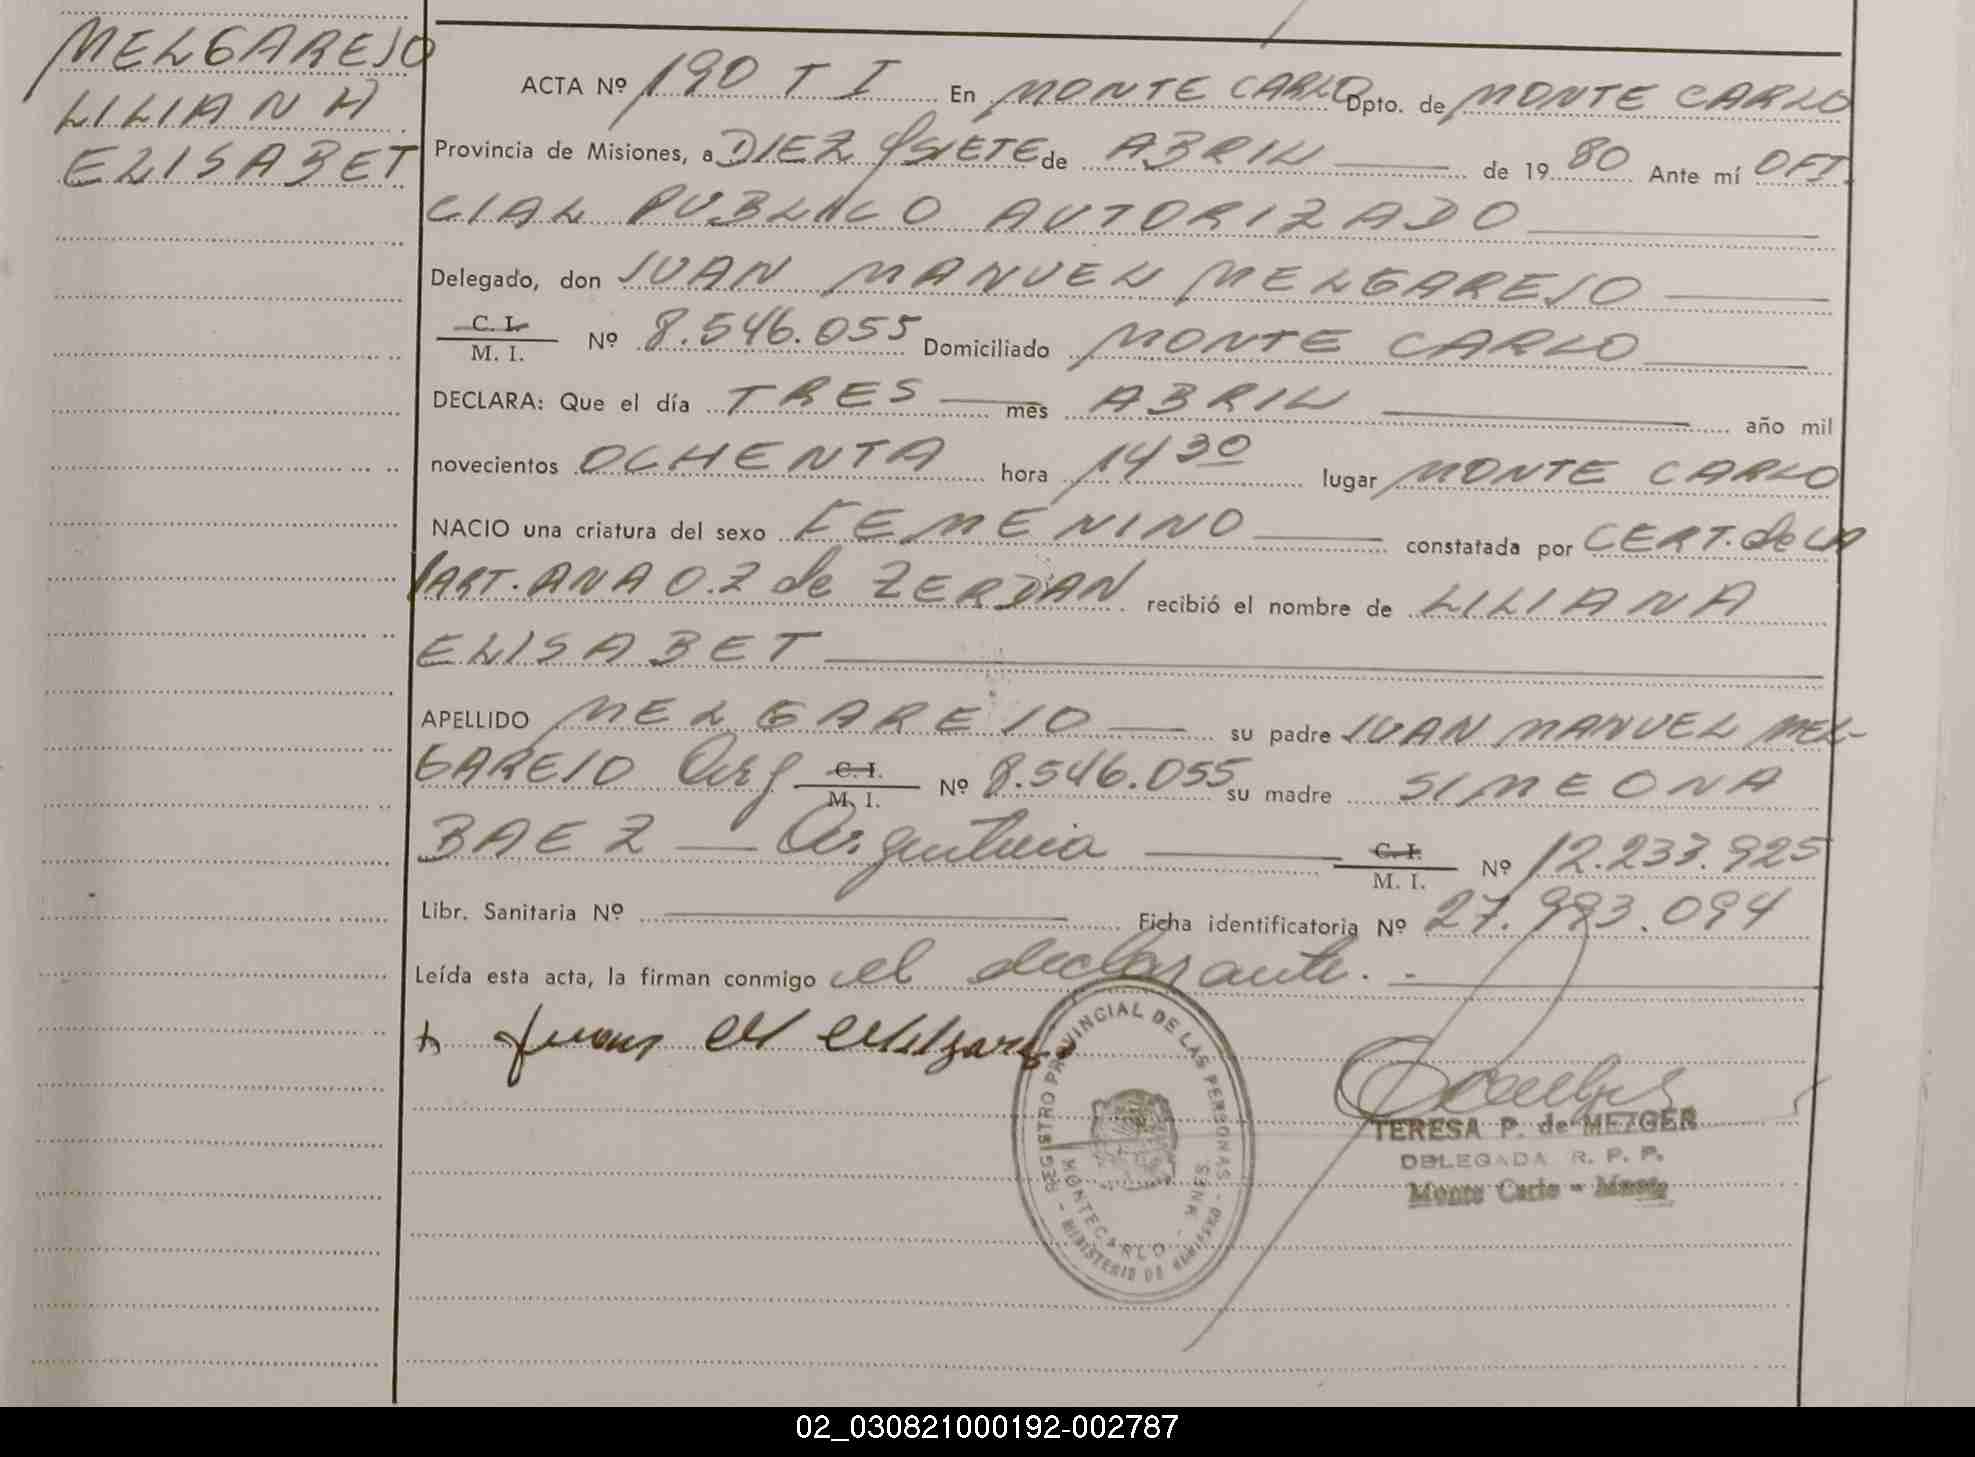 MELGAREJO
LILIAN A
ELISABET
ACTA Nº 190 T I En MONTE CARLO Dpto. de MONTE CARLO
Provincia de Misiones, a DIEZ y SIETE de ABRIL de 1980 Ante mí OFI
CIAL PUBLICO AUTORIZADO
Delegado, don JUAN MANUEL MELGAREJO
C. I. / M. I. Nº 8.546.055 Domiciliado MONTE CARLO
DECLARA: Que el día TRES mes ABRIL año mil
novecientos OCHENTA hora 14 30 lugar MONTE CARLO
NACIO una criatura del sexo FEMENINO constatada por CERT. de LA
PART. ANA O. Z de ZERDAN recibió el nombre de LILIANA
ELISABET
APELLIDO MELGAREJO su padre JUAN MANUEL MEL-
GAREJO Arg C. I. / M. I. Nº 8.546.055 su madre SIMEONA
BAEZ — Argentina C. I. / M. I. Nº 12.233.925
Libr. Sanitaria Nº Ficha identificatoria Nº 27.993.094
Leída esta acta, la firman conmigo el declarante. -
Juan M Melgarejo
REGISTRO PROVINCIAL DE LAS PERSONAS - MINISTERIO DE
MONTECARLO - MNES.
TERESA P. de METZGER
DELEGADA R. P. P.
Monte Carlo - Mnes
02_030821000192-002787